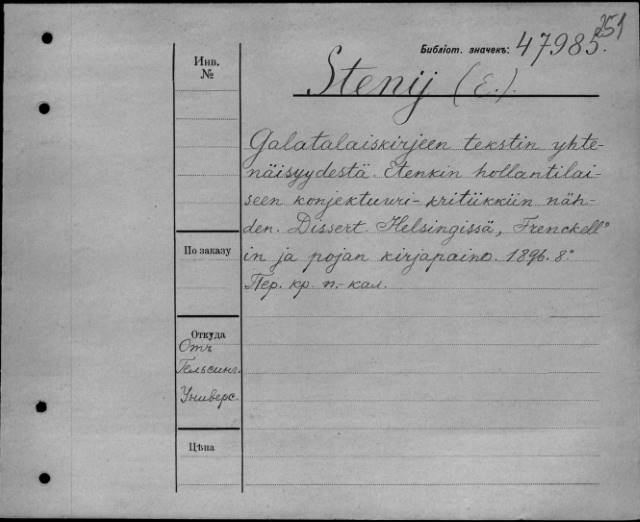 251
Библіот. значекъ: 47985.
Инв.
№
Stenij (E.).
Galatalaiskirjeen tekstin yhte-
näisyydestä. Etenkin hollantilai-
seen konjektuuri-kritiikkiin näh-
den. Dissert. Helsingissä, Frenckell'
in ja pojan kirjapaino. 1896. 8°.
Пер. кр. п.-кал.
По заказу
Откуда
Отъ
Гельсинг.
Универс.
Цѣна